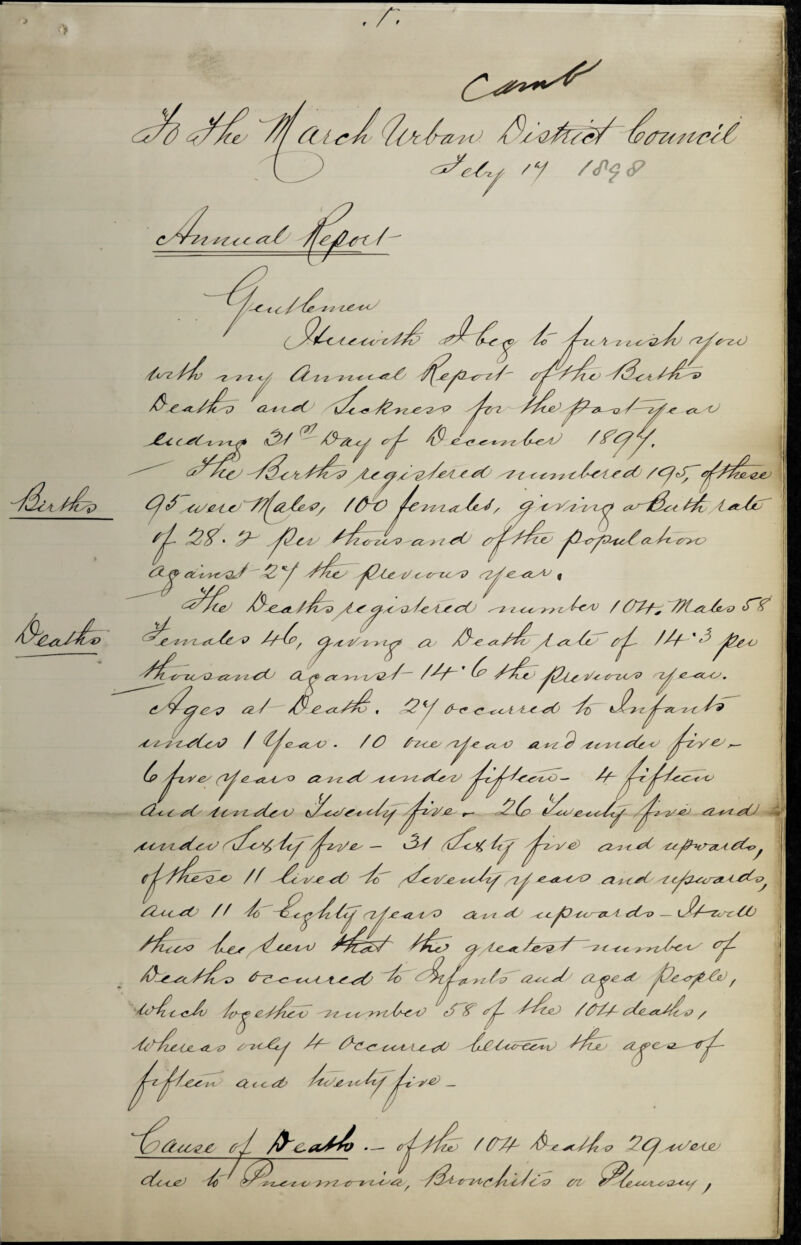 . 1 .
Camb
To The March Urban District Council
Feby 17 1898
Annual Report
Gentlemen
Herewith I beg to furnish you
with my Annual Report of the Births
Deaths and Sickness for the past year
ending 31st Day of December 1897.
Births
The Births registered numbered 195, of these
95 were Males, 100 females, giving a Birth rate
of 28.2 per thousand of the population
against 27 the previous year.
Deaths
The Deaths registered number 104. Males 58
Females 46, giving a Death rate of 14.3 per
thousand against 14.6 the previous year.
Ages at Death. 27 occurred to Infants
under 1 Year. 10 one year and under five -
6 five years and under fifteen - 4 fifteen
and under Twenty five - 26 Twenty five and
under Sixty five - 31 Sixty five and upwards,
of these 11 lived to Seventy years and upwards,
and 11 to Eighty years and upwards - It will
thus bee seen that the greatest number of
Deaths occurred to Infants and aged people,
which together number 58 of the 104 deaths,
whereas only 4 Occurred between the ages of
fifteen and twenty five -
Cause of Death. - of the 104 Deaths 29 were
due to Pneumonia, Bronchitis or Pleurisey,